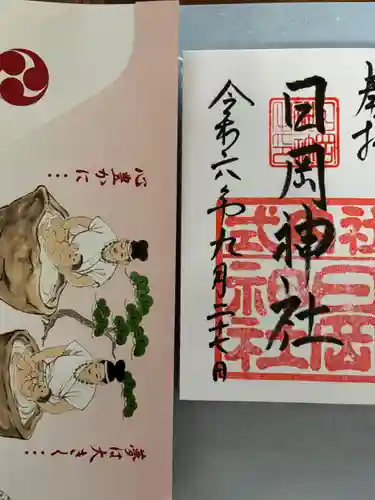 奉拝
日岡神社
令和六年九月二十七日
式内社
日岡神社
心豊かに…
夢は大きく…